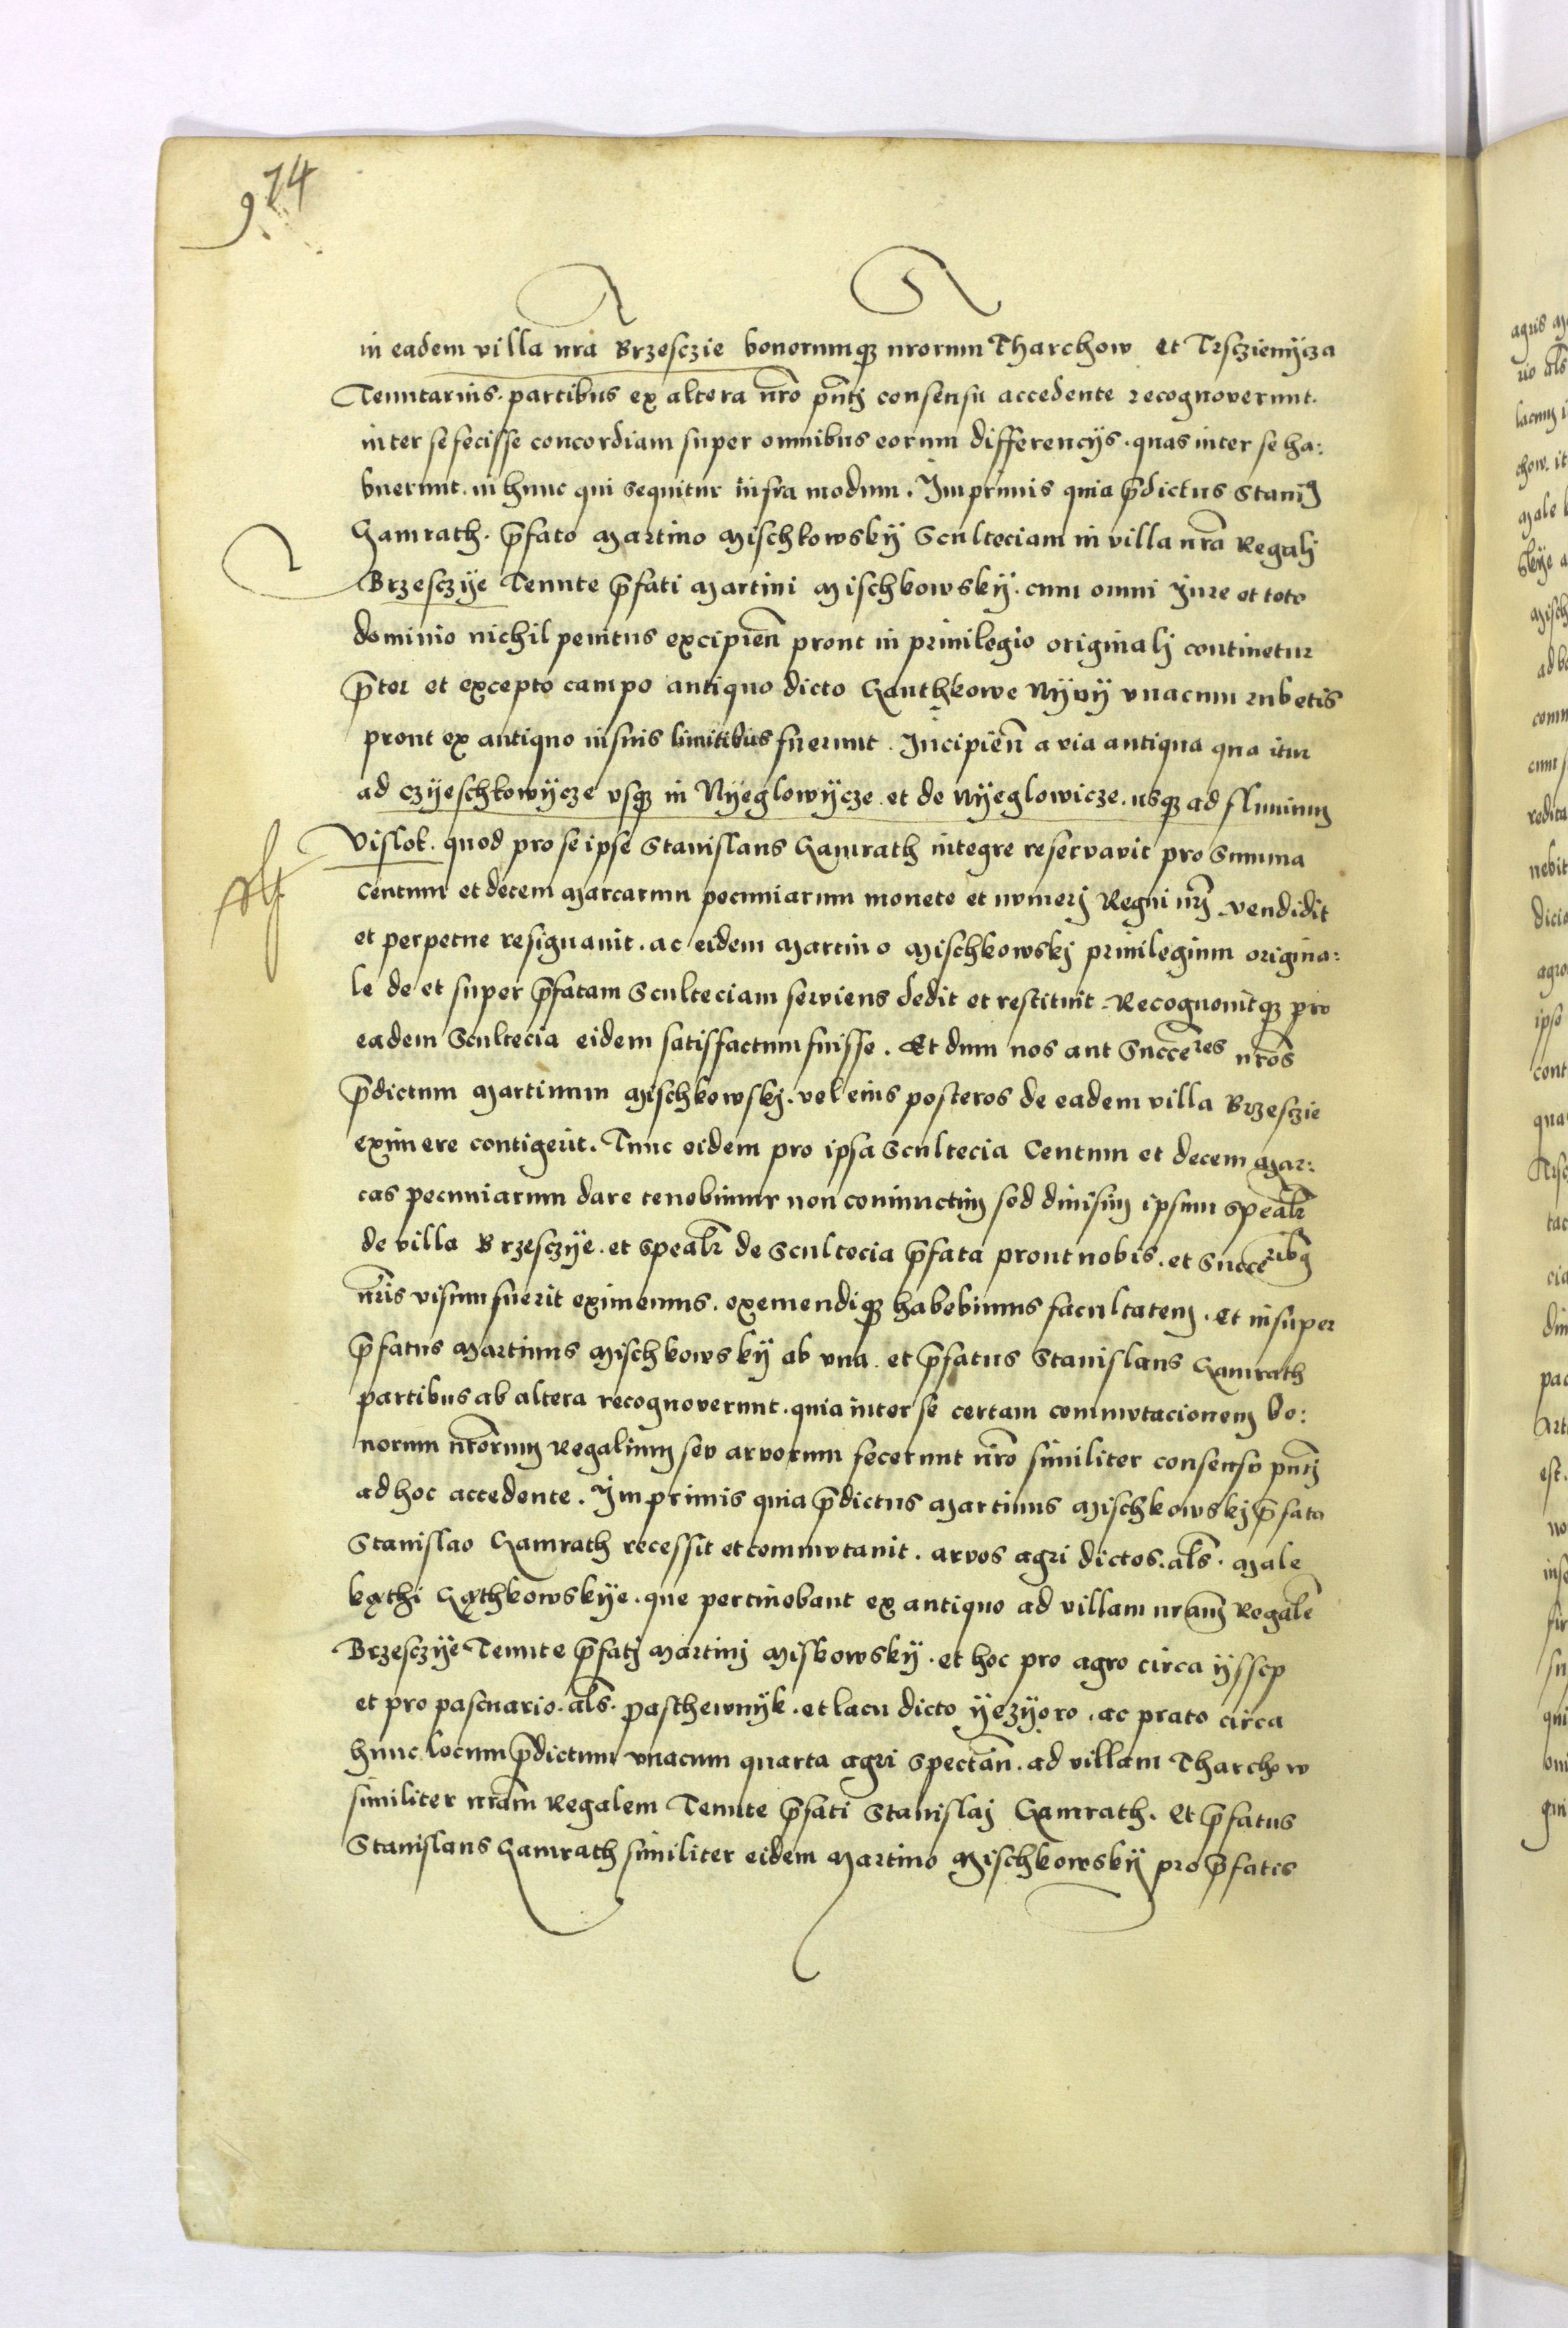 974
in eadem villa nrā Brzesczie bonorumqꝫ nrorum Tharchow et Trsczienycza
Tenutarius. partibus ex altera nro̅ pn̅tj consensu accedente recognoverunt.
inter se fecisse concordiam super omnibus eorum differencÿs. quas inter se ha:
buerunt. in hunc qui sequitur infra modum. Imprimis quia p̅dictus Stanis
Gamrath. p̅fato Martino Mischkowskÿ Sculteciam in villa nrā Regalj
Brzesczÿe Tenute p̅fati Martini Mischkowskÿ. cum omni Jure et toto
dominio nichil penitus excipien̅ prout in privilegio originalj continetur
p̅ter et excepto campo antiquo dicto Ganthkowe Nÿvÿ vnacum rubetis
prout ex antiquo in suis limitibus fuerunt. Incipien̅ a via antiqua qua itur
ad Czÿeschkowÿcze vsqꝫ in Nÿeglowÿcze. et de Nÿeglowicze. usqꝫ ad fluuium
Vislok. quod pro se ipse Stanislaus Gamrath integre reservavit pro Summa
Centum et decem Marcarum pecuniarum monete et numerj Regni nrj̅ vendidit
et perpetue resignauit. ac eidem Martino Mischkowskj priuilegium origina:
le de et super p̅fatam Sculteciam serviens dedit et restituit. Recognouitqꝫ pro
eadem Scultecia eidem satisfactum fuisse. Et dum nos aut Succe̅res nrōs
p̅dictum Martinum Mischkowskj. vel eius posteros de eadem villa Brzesczie
eximere contigerit. Tunc eidem pro ipsa Scultecia Centum et decem Mar:
cas pecuniarum dare tenebimur non coniunctim sed diuisim ipsum spealr̅
de villa Brzesczÿe. et spealr̅ de Scultecia p̅fata prout nobis. et Succe̅ribꝫ
nr̅is visum fuerit eximemus. exemendiqꝫ habebimus facultatem. Et insuper
p̅fatus Martinus Mischkowskÿ ab vna. et p̅fatus Stanislaus Gamrath
partibus ab altera recognoverunt. quia inter se certam commutacionem bo:
norum nrōrum Regalium seu arvorum fecerunt nr̅o similiter consensu pn̅tj
ad hoc accedente. Imprimis quia p̅dictus Martinus Mischkowskj p̅fato
Stanislao Gamrath recessit et commutauit. arvos agri dictos. als̅. Male
kąthi Gąthkowskÿe. que pertinebant ex antiquo ad villam nra̅m Regale̅
Brzesczÿe Tenute p̅fatj Martinj Miskowskÿ. et hoc pro agro circa ÿssep
et pro pascuario. als̅. pasthewnÿk. et lacu dicto ÿezÿoro. ac prato circa
hunc locum p̅dictum vnacum quarta agri spectan̅. ad villam Tharchow
similiter nra̅m Regalem Tenute p̅fati Stanislaj Gamrath. Et p̅fatus
Stanislaus Gamrath similiter eidem Martino Mischkowskÿ pro p̅fatis